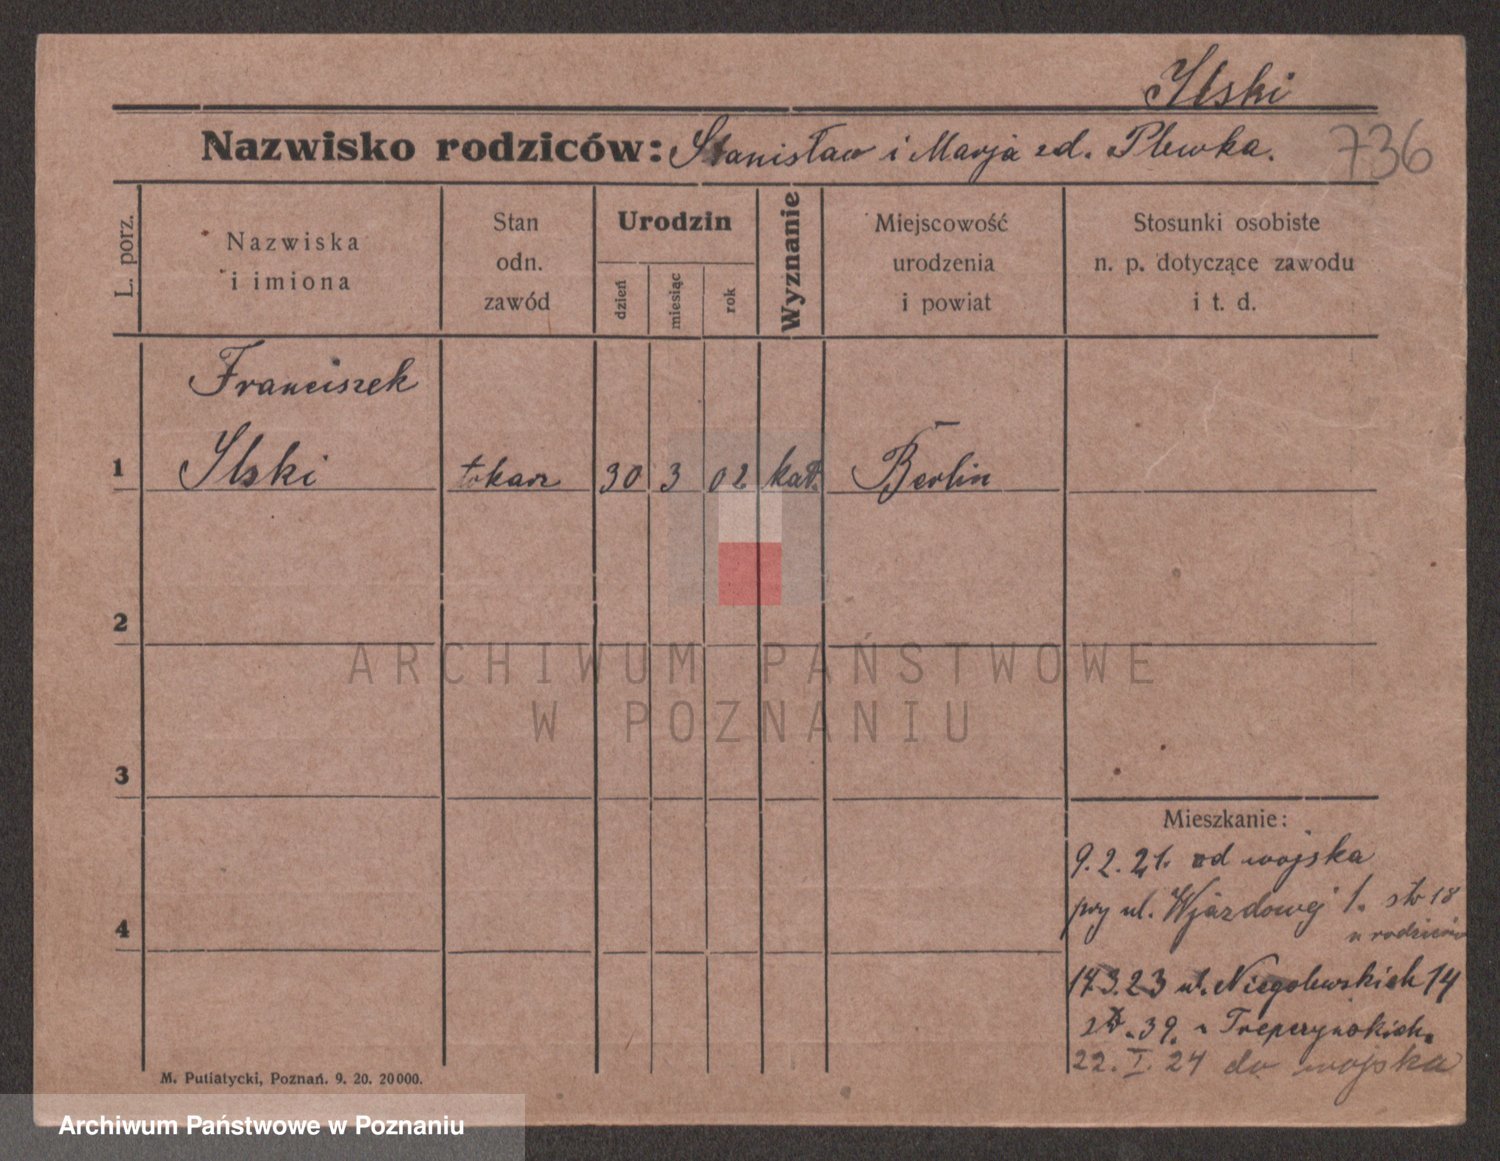 Ilski
Nazwisko rodziców: Stanisław i Marja zd. Plewka.
736
L. porz.
Nazwiska
i imiona
Stan
odn.
zawód
Urodzin
dzień
miesiąc
rok
Wyznanie
Miejscowość
urodzenia
i powiat
Stosunki osobiste
n. p. dotyczące zawodu
i t. d.
Franciszek
1 Ilski tokarz 30 3 02 kat. Berlin
2
3
4
ARCHIWUM PAŃSTWOWE
W POZNANIU
Mieszkanie:
9.2.21. od wojska
przy ul. Wjazdowej 1. 18
u rodziców
17.3.23 ul. Niegolewskich 14
39.
22. I. 24 do wojska
M. Putiatycki, Poznań. 9. 20. 20000.
Archiwum Państwowe w Poznaniu